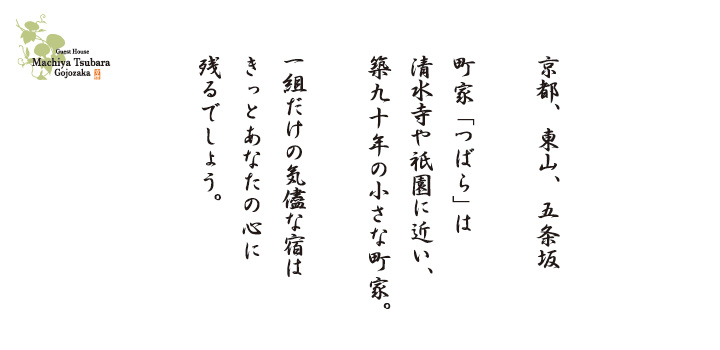 Guest House
Machiya Tsubara
Gojozaka
京都、東山、五条坂
町家「つばら」は
清水寺や祇園に近い、
築九十年の小さな町家。
一組だけの気儘な宿は
きっとあなたの心に
残るでしょう。